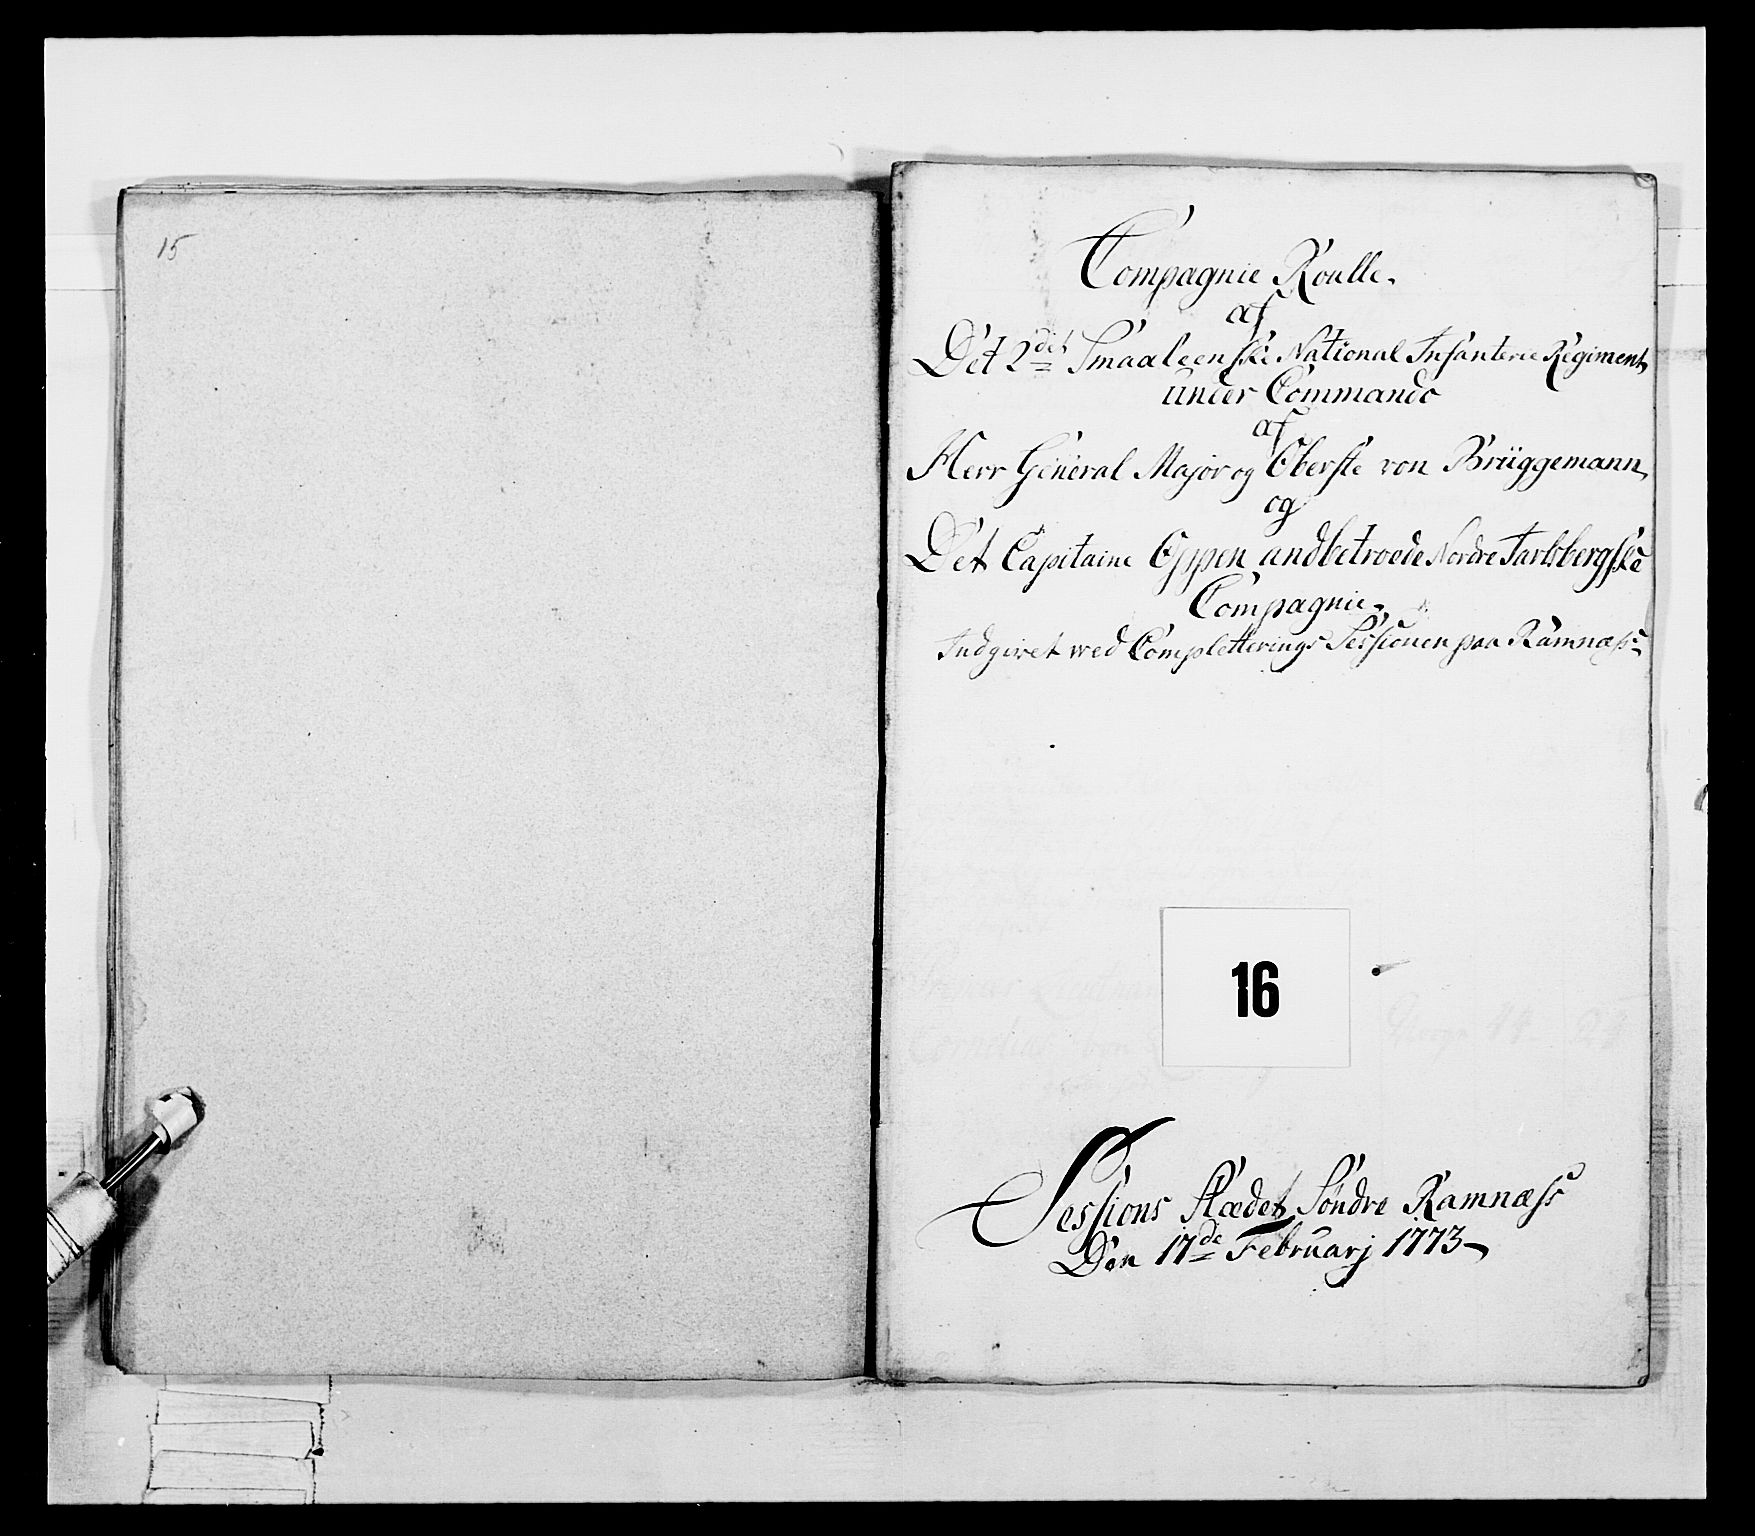 15
Compagnie Roulle.
af
Det 2det Smaaleenske National Infanterie Regiment
under Commando
af
Herr General Major og Oberste von Brüggemann
og
Det Capitaine Eppen andbetroede Nordre Jarlsbergske
Compagnie.
Indgivet wed Completterings Sessionen paa Ramnæss
16
Sessions Stædet Søndre Ramnæss
Den 17de Februarj 1773